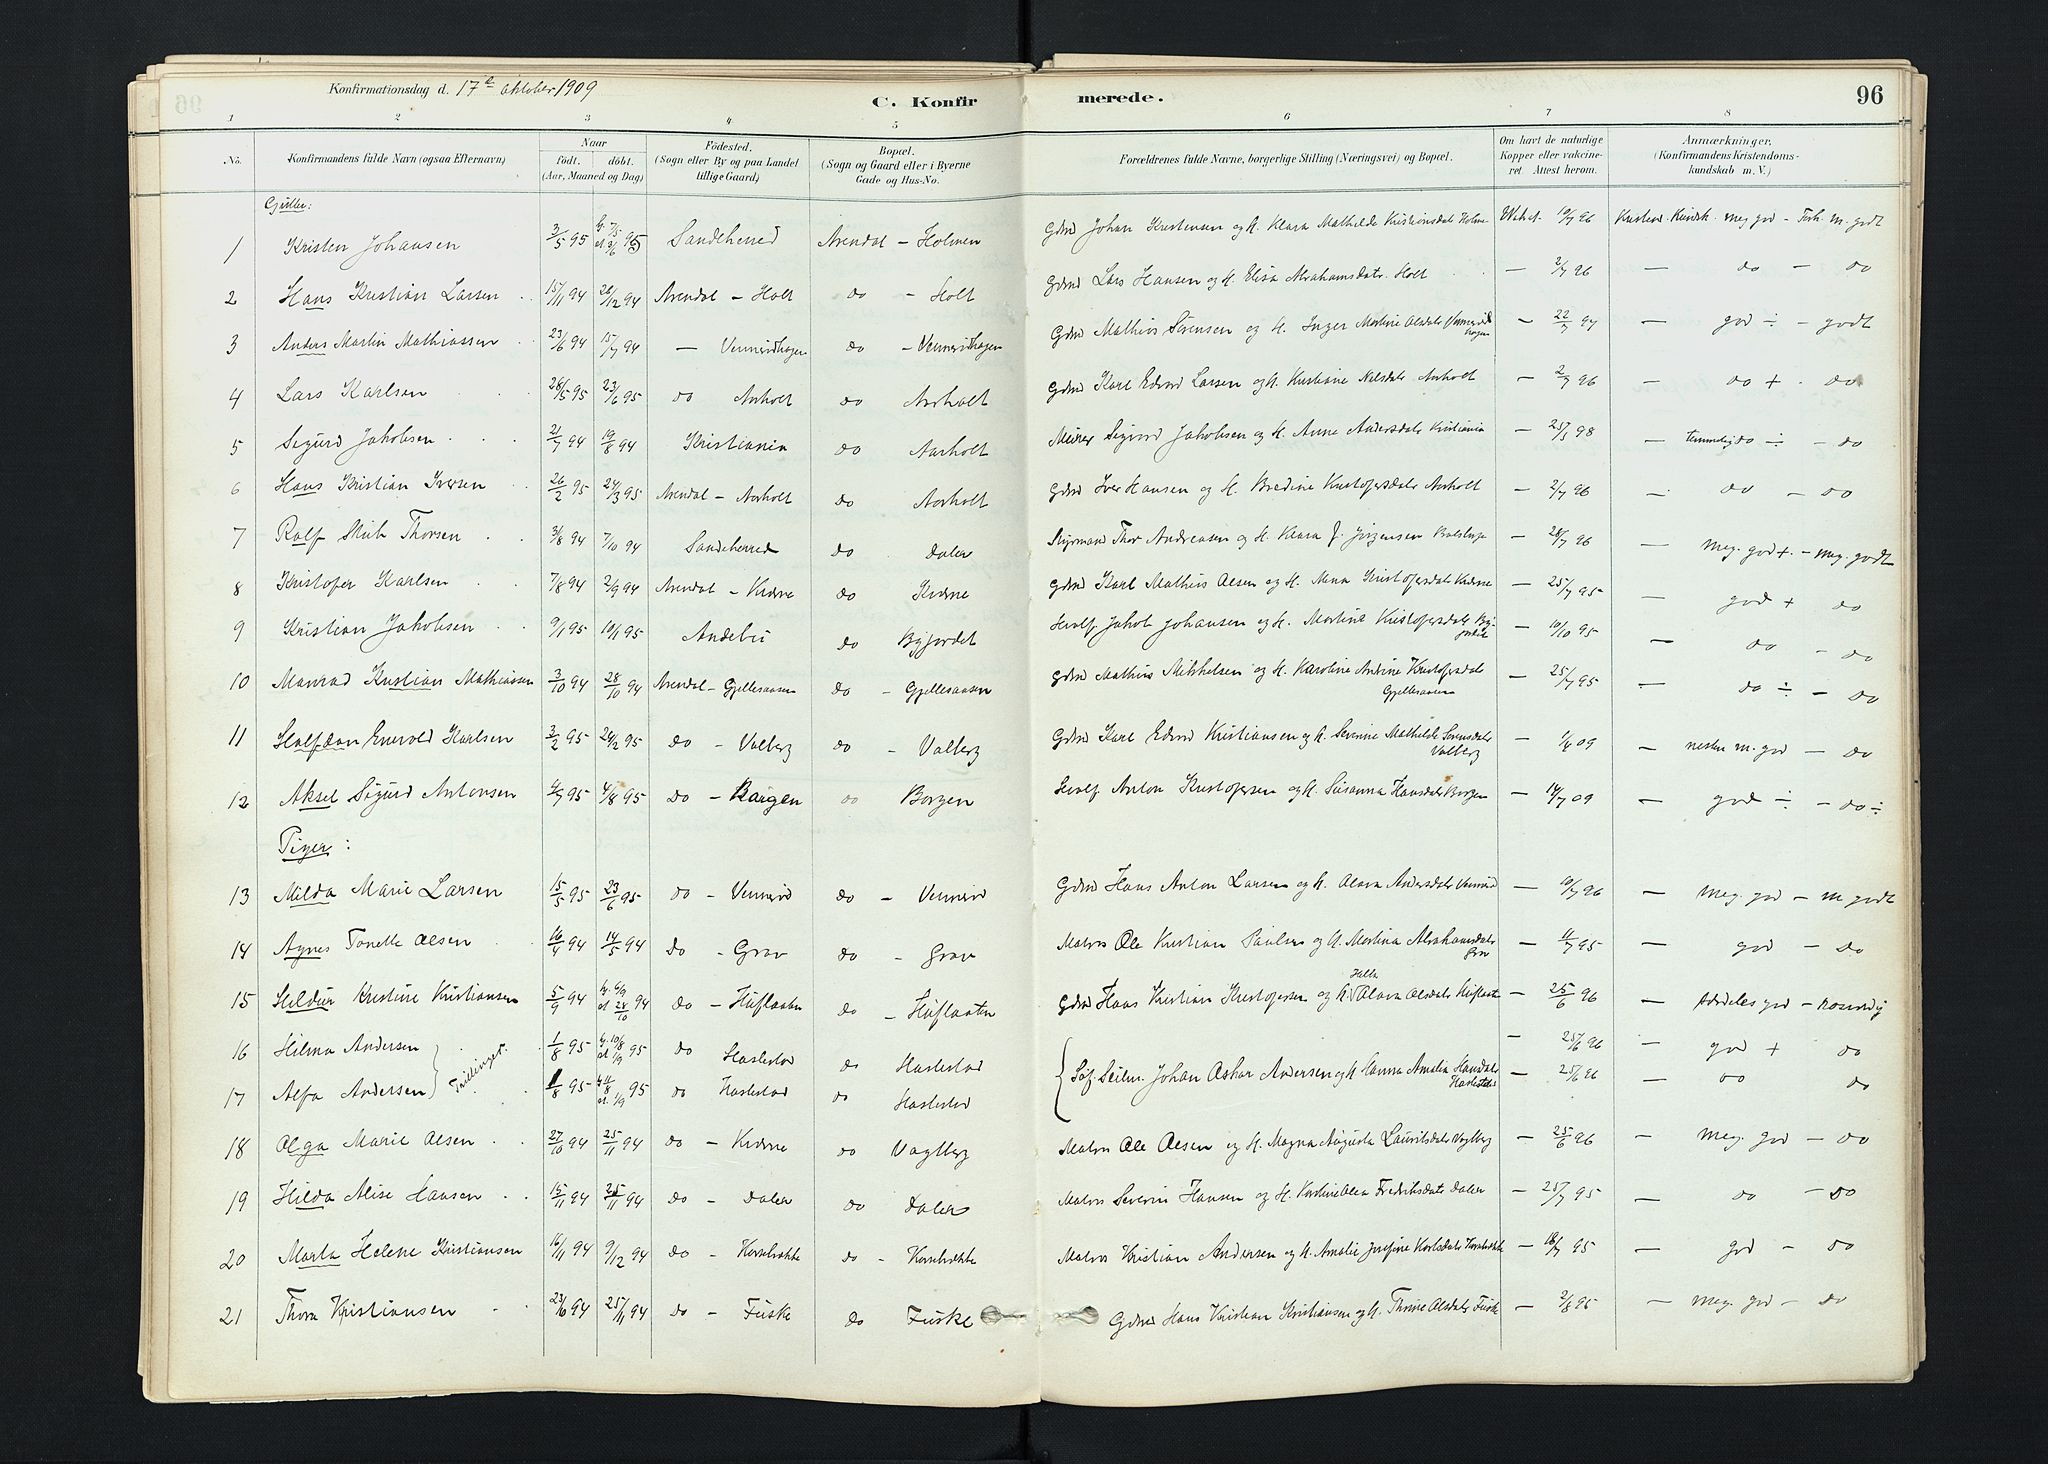 Konfirmationsdag d. 17de Oktober 1909
C. Konfir merede. 96
1 2 3 4 5 6 7 8
No. Konfirmandens fulde Navn (ogsaa Efternavn) Naar født. døbt. (Aar, Maaned og Dag) Födested. (Sogn eller By og paa Landet tillige Gaard) Bopæl. (Sogn og Gaard eller i Byerne Gade og Hus-No. Forældrenes fulde Navne, borgerlige Stilling (Næringsvei) og Bopæl. Om havt de naturlige Kopper eller vakcineret. Attest herom. Anmærkninger. (Konfirmandens Kristendomskundskab m. V.)
Gutter:
1 Kristen Johansen 3/5 95 hj. 7/5 st. 3/6 95 Sandeherred Arendal - Holmen Gdmd Johan Kristensen og H. Klara Mathilde Kristiansdatr Holmen 10/7 96 Kristend. Kundsk. meg. god - Forh. m. godt
2 Hans Kristian Larsen 15/11 94 26/12 94 Arendal - Holt do - Holt Gdmd Lars Hansen og H. Elisa Abrahamsdatr. Holt - 2/7 96 - do - do
3 Anders Martin Mathiassen 23/6 94 15/7 94 - Vennerødhagen do - Vennerødhagen Gdmd Mathias Sørensen og H. Inger Martine Olsdatr Vennerødhagen - 22/7 97 - god ÷ - godt
4 Lars Karlsen 28/5 95 23/6 95 do Aorholt do Aorholt Gdmd Karl Edvard Larsen og H. Kristiane Nilsdatr Aorholt - 2/7 96 - do + - do
5 Sigurd Jakobsen 21/7 94 19/8 94 Kristiania do Aarholt Sigurd Jakobsen og H. Anna Andersdatr Kristiania - 25/5 98 - temmelig do ÷ - do
6 Hans Kristian Iversen 26/2 95 24/3 95 Arendal - Aorholt do Aorholt Gdmd Iver Hansen og H. Bredine Kristofersdatr Aorholt - 2/7 96 - do - do
7 Rolf Thorsen 31/8 94 7/10 94 Sandeherred do Dalen Styrmand Thor Andreasen og H. Klara J. Jörgensen - 28/7 96 - meg. god + - meg. godt
8 Kristofer Karlsen 7/8 94 2/9 94 Arendal - Kværne do Kværne Gdmd Karl Mathias Olsen og H. Mina Kristofersdatr Kværne - 25/7 95 - god + do
9 Kristian Jakobsen 9/1 95 10/1 95 Andebu do Byfjordet Jakob Johansen og H. Martine Kristofersdatr Byfjordet - 10/10 95 - do - do
10 Manrad Kristian Mathiassen 3/10 94 28/10 94 Arendal - Gjellesaasen do - Gjellesaasen Gdmd Mathias Mikkelsen og H. Karoline Andrine Kristofersdatr Gjellesaasen - 25/7 95 - do ÷ - do
11 Halfdan Enevold Karlsen 3/2 95 24/2 95 do - Valberg do - Valberg Gdmd Karl Edvard Kristiansen og H. Severine Mathilde Sørensdatr Valberg - 09 - nesten m. god - do
12 Aksel Sigurd Antonsen 4/7 95 4/8 95 do - Borgen do Borgen Anton Kristofersen og H. Susanna Hansdatr Borgen - 14/7 09 - god ÷ - do ÷
Piger:
13 Milda Marie Larsen 15/5 95 23/6 95 do - Vennerød do - Vennerød Gdmd Hans Anton Larsen og H. Olava Andersdatr Vennerød - 10/7 96 - meg. god - m godt
14 Agnes Tonette Olsen 16/4 94 14/5 94 do - Grav do - Grav Matros Ole Kristian Paulsen og H. Martina Abrahamsdatr Grav - 11/7 95 - god - do
15 Hildur Kristine Kristiansen 5/9 94 hj. 6/9 st. 28/10 94 do - Huflaaten do - Huflaaten Gdmd Hans Kristian Kristofersen og H. Olava Olsdatr Huflaaten - 25/6 96 - særdeles god - rosværdig
16 Hilma Andersen 1/8 95 hj. 10/8 st. 1/9 95 do Haslestad do Haslestad - 25/6 96 - god + do
17 Alfa Andersen } Tvillinger. 1/8 95 hj. 11/8 st. 1/9 95 do Haslestad do Haslestad { Johan Oskar Andersen og H. Hanna Amalia Hansdatr Haslestad - 25/6 96 - do do
18 Olga Marie Olsen 27/10 94 25/11 94 do - Kværne do Vogtberg Matros Ole Olsen og H. Magna Augusta Lauritsdatr Vogtberg - 25/6 96 - meg. god - do
19 Hilda Alise Hansen 15/11 94 25/11 94 do - Dalen do Dalen Matros Severin Hansen og H. Karoline Olea Fredriksdatr Dalen - 25/7 95 - do - do
20 Marta Helene Kristiansen 16/11 94 9/12 94 do - Hornbrekke do - Hornbrekke Matros Kristian Andersen og H. Amalie Josefine Karlsdatr Hornbrekke - 18/7 95 - god - do
21 Thora Kristiansen 23/10 94 25/11 94 do - Fuske do Fuske Gdmd Hans Kristian Kristiansen og H. Thrine Olsdatr Fuske - 2/8 95 - meg. god - do